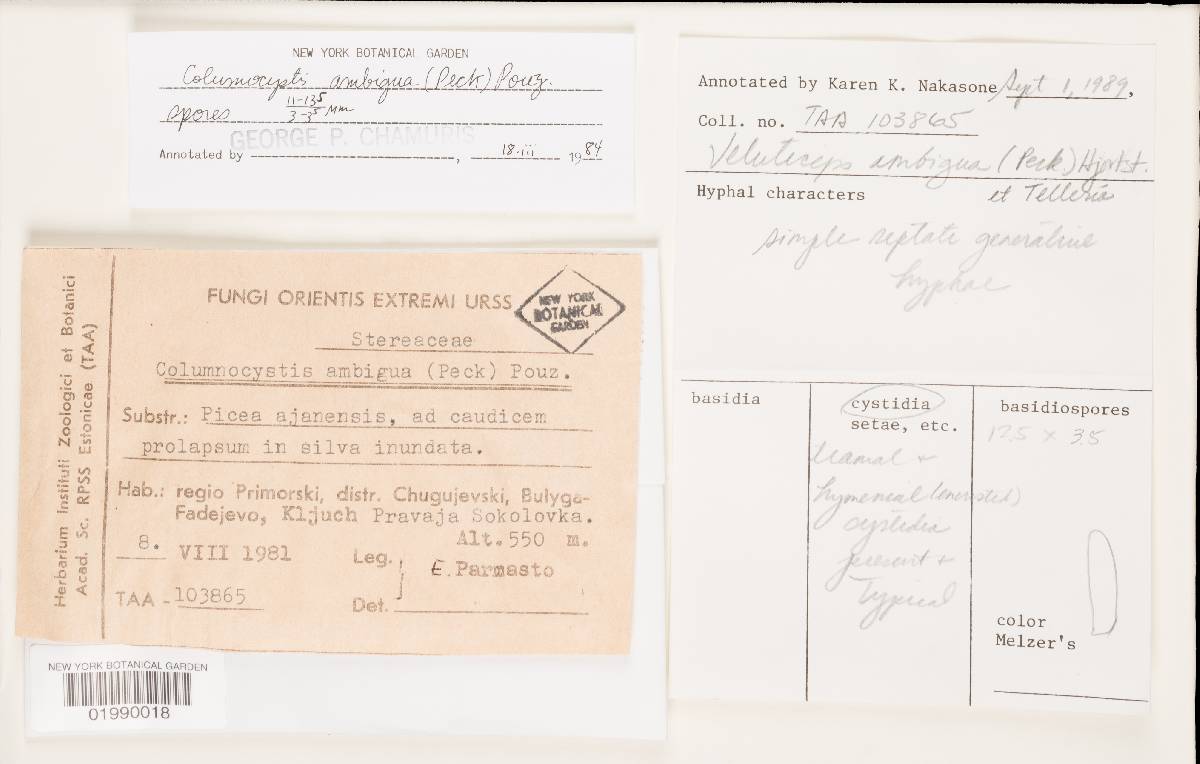 NEW YORK BOTANICAL GARDEN
Columocysti ambigua (Peck) Pouz.
spores 11-13.5
3-3.5 Mm
GEORGE P. CHAMURIS
Annotated by 18·iii 1984
Annotated by Karen K. Nakasone Sept 1, 1989,
Coll. no. TAA 103865
Veluticeps ambigua (Peck) Hjortst.
et Telleria
Hyphal characters
simple septate generative
hyphae
basidia
cystidia
setae, etc.
tramal +
hymenial (encrusted)
cystidia
present +
typical
basidiospores
12.5 x 3.5
color
Melzer's
Herbarium Instituti Zoologici et Botanici
Acad. Sc. RPSS Estonicae (TAA)
FUNGI ORIENTIS EXTREMI URSS
NEW YORK
BOTANICAL
GARDEN
Stereaceae
Columnocystis ambigua (Peck) Pouz.
Substr.: Picea ajanensis, ad caudicem
prolapsum in silva inundata.
Hab.: regio Primorski, distr. Chugujevski, Bulyga-
Fadejevo, Kljuch Pravaja Sokolovka.
Alt. 550 m.
8. VIII 1981
Leg. E. Parmasto
TAA - 103865
Det.
NEW YORK BOTANICAL GARDEN
01990018